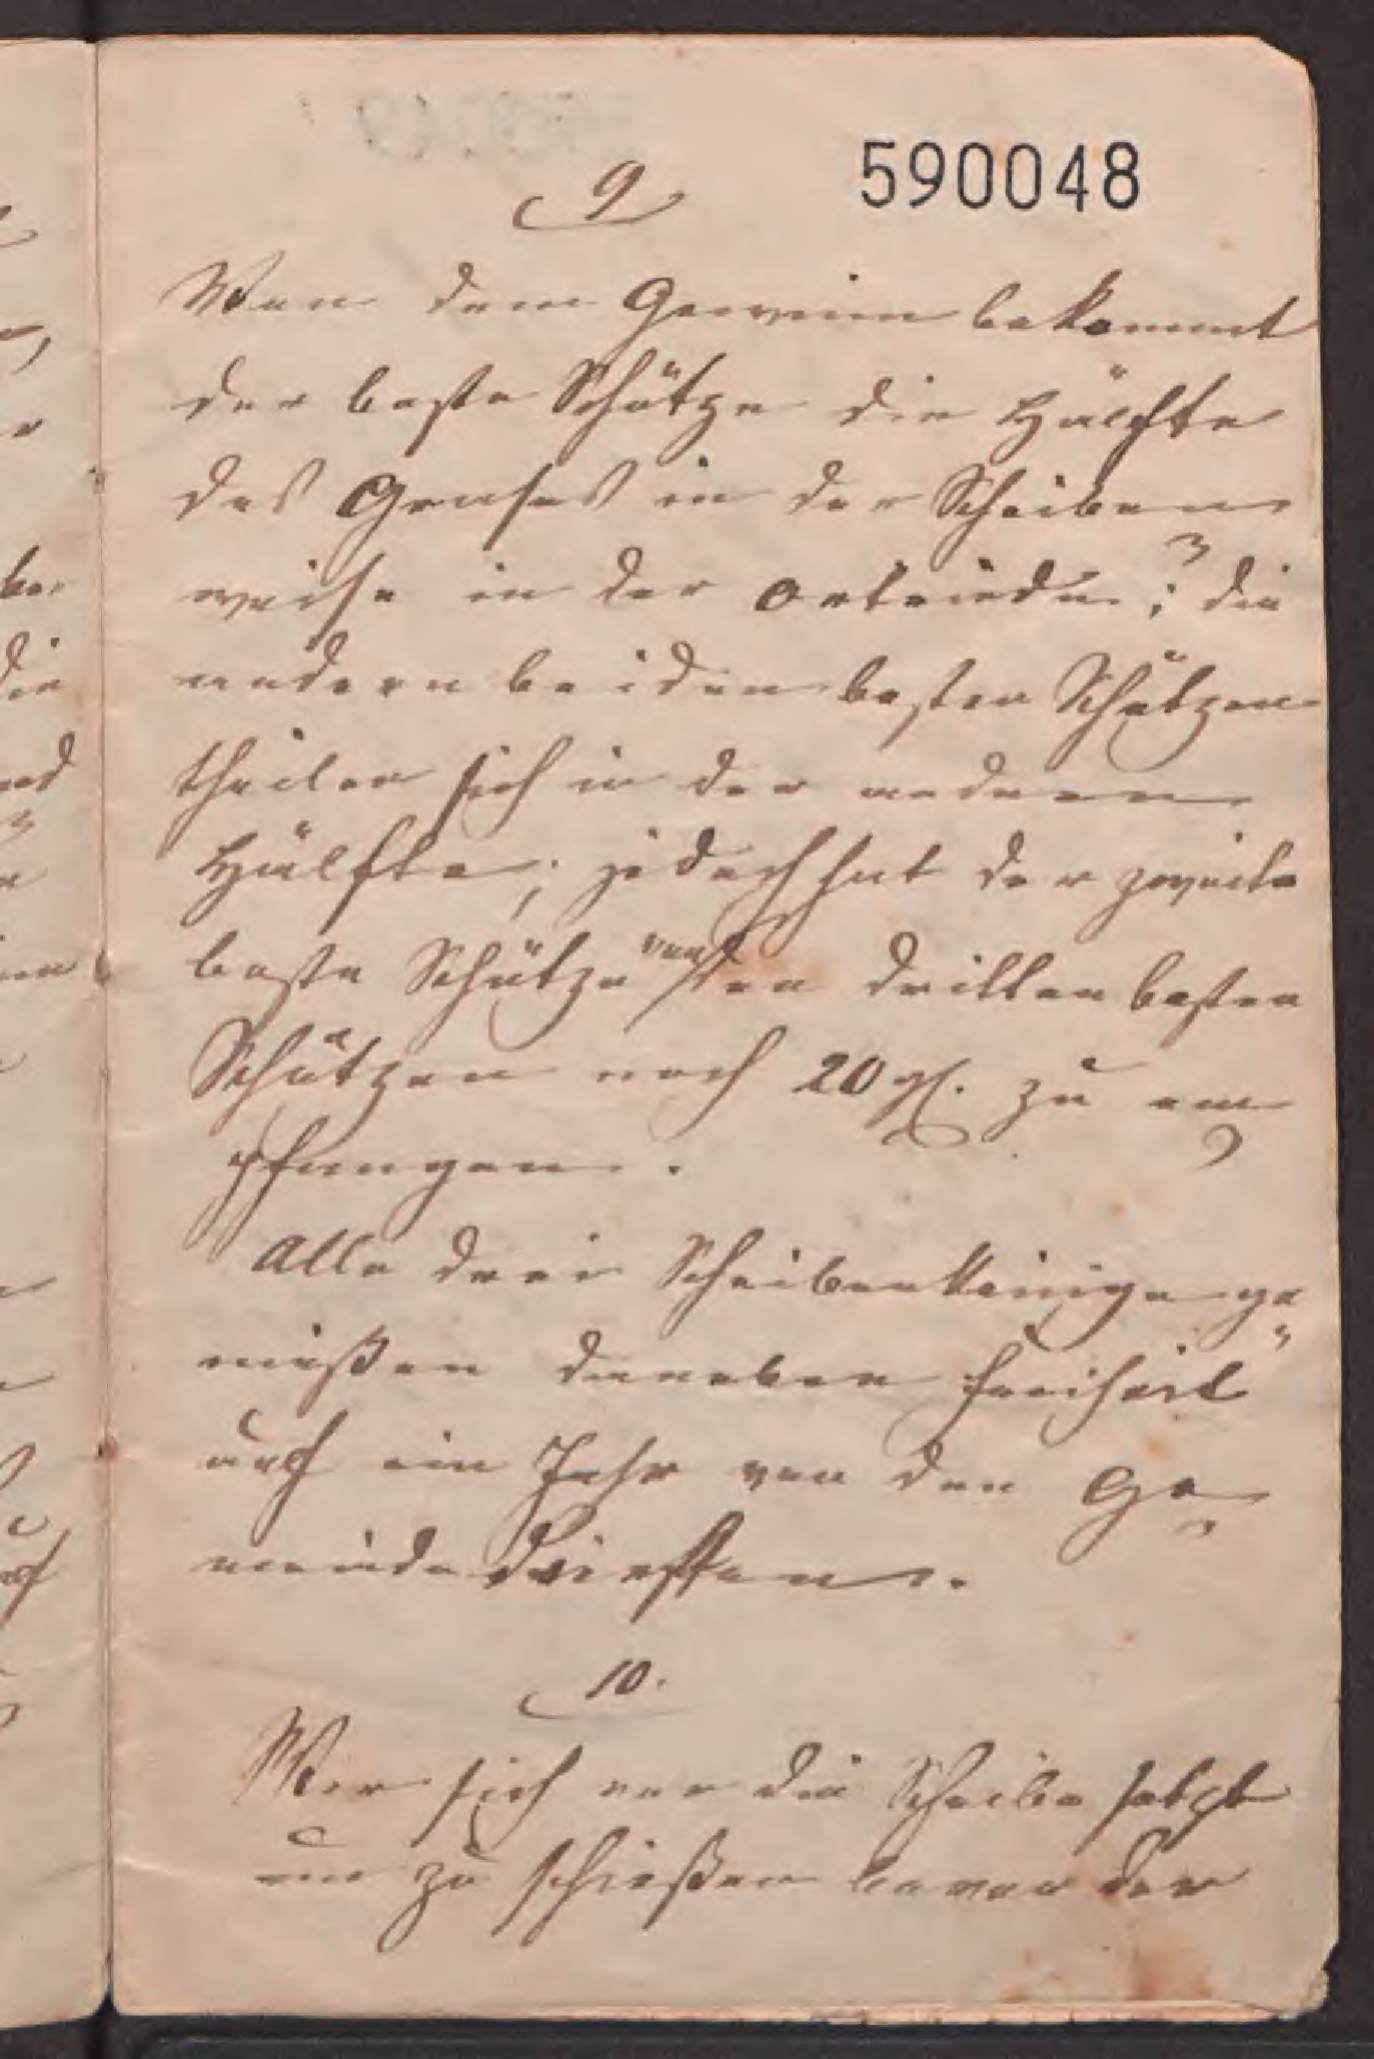 590048
9
Von dem Gewinn bekommt
der beste Schütze die Hälfte
des Grases in der Scheiben
weise in der ortriede; die
andern beiden besten Schützen
theilen sich in der andern
Hälfte; jedoch hat der zweite
beste Schütze von den dritten besten
Schützen noch 20 gl. zu em
pfangen.
Alle drei Scheibenkönige ge
nießen daneben Freiheit
auf ein Jahr von den Ge
meindediensten.
10.
Wer sich vor die Scheibe setzt
um zu schießen bevor der